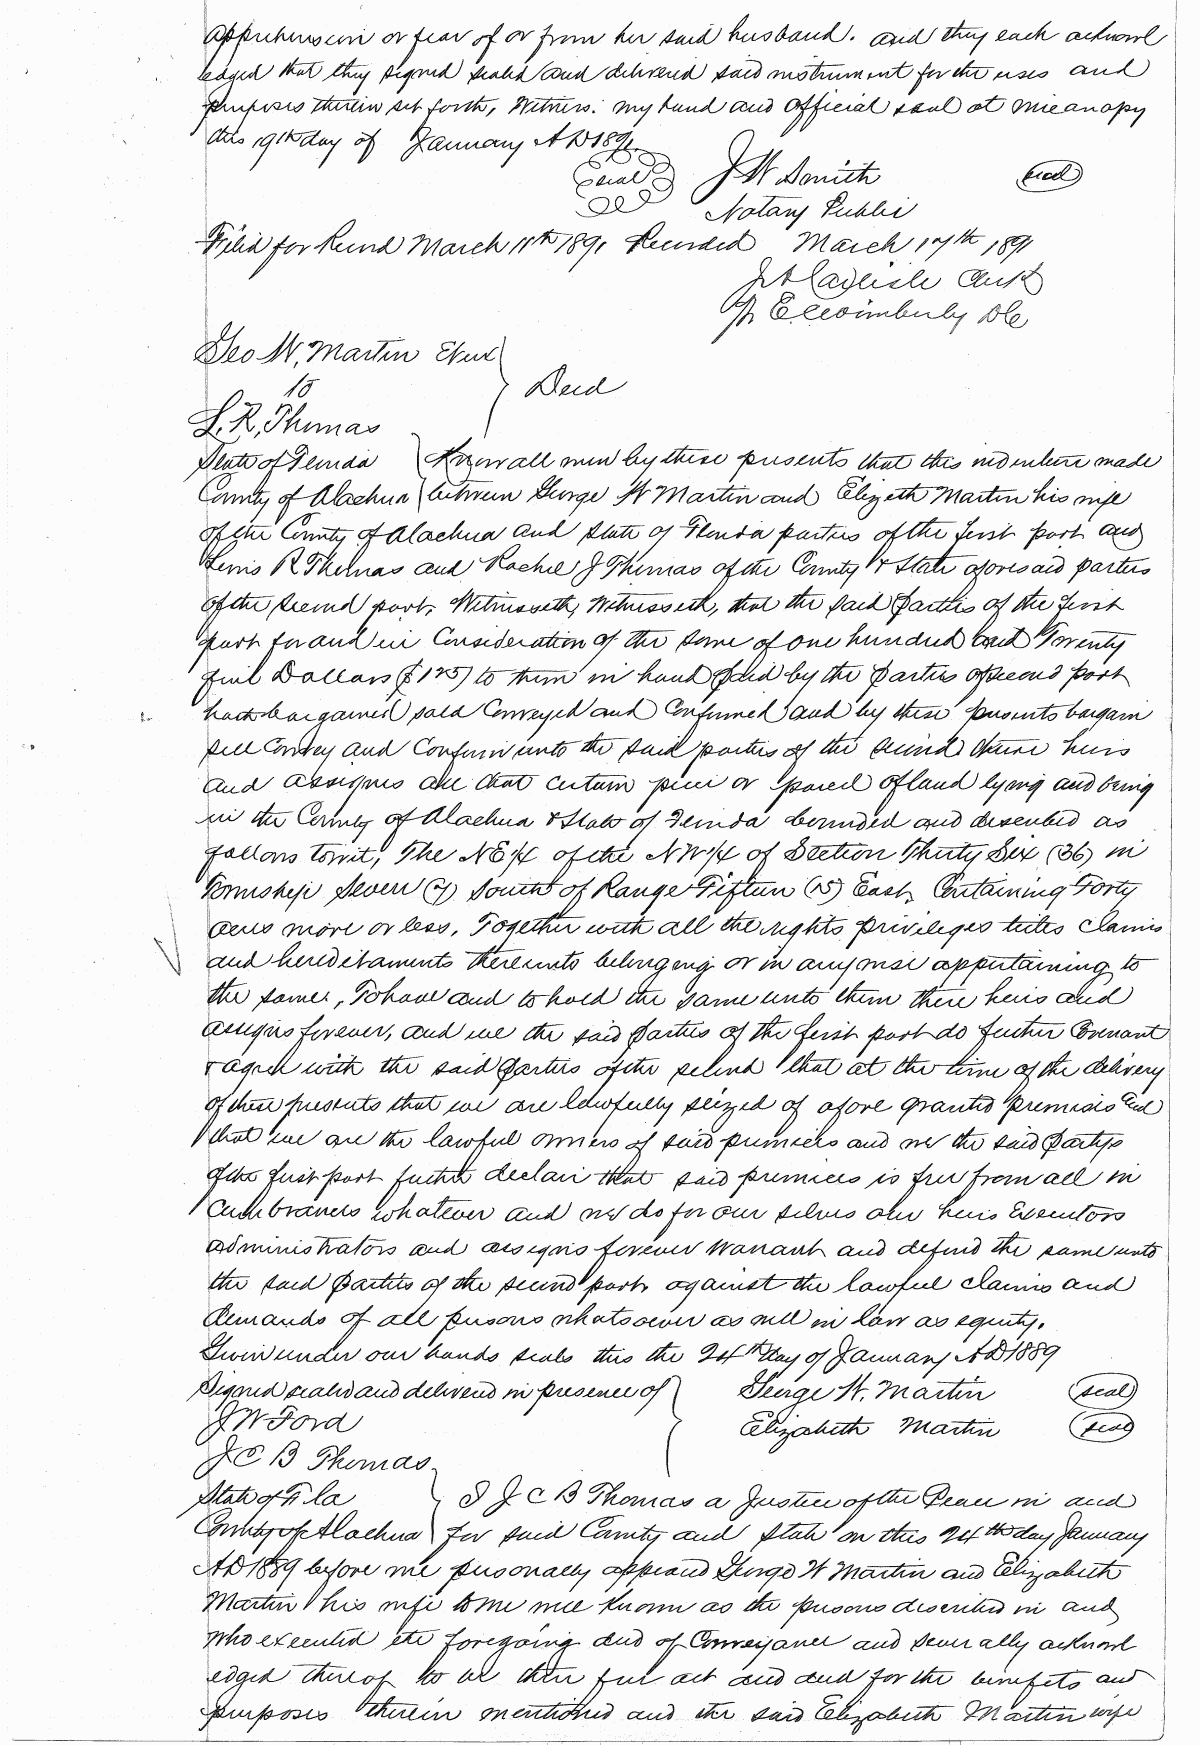 apprehension or fear of or from her said husband. and they each acknowl
edged that they signed sealed and delivered said instrument for the uses and
purposes therein set forth, Witness: my hand and official seal at Micanopy
this 19th day of January AD 1891.
Seal J W Smith seal
Notary Public
Filed for Record March 11th 1891 Recorded March 17th 1891
J A Carlisle Clerk
Pr E C Wimberly DC
Geo W. Martin Etux
to Deed
L. R. Thomas
State of Florida Know all men by these presents that this indenture made
County of Alachua between George W Martin and Elizeth Martin his wife
of the County of Alachua and State of Florida parties of the first part and
Lewis R Thomas and Rachel J Thomas of the County & State aforesaid parties
of the second part, Witnesseth, Witnesseth, that the said parties of the first
part for and in Consideration of the some of one hundred and Twenty
five Dollars ($125) to them in hand paid by the parties of second part
hath bargained sold Conveyed and Confirmed and by these presents bargain
sell Convey and Confirm unto the said parties of the second there heirs
and assignes all that certain piece or parcel of land lying and being
in the County of Alachua & State of Florida bounded and described as
follows towit, The NE1/4 of the NW1/4 of Section Thirty Six (36) in
Township Seven (7) South of Range Fifteen (15) East, Containing Forty
acres more or less, Together with all the rights privileges titles claims
and hereditaments thereunto belonging or in anywise appertaining to
the same, To have and to hold the same unto them there heirs and
assigns forever, and we the said parties of the first part do further Covenant
& agree with the said parties of the second that at the time of the delivery
of these presents that we are lawfully seized of afore granted premises and
that we are the lawful owners of said premices and we the said partys
of the first part further declair that said premices is free from all in
Cumbrances whatever and we do for our selves our heirs Executors
administrators and assigns forever Warrant and defend the same unto
the said parties of the second part against the lawful claims and
demands of all persons whatsoever as well in law as equity.
Given under our hands seals this the 24th day of January AD 1889
Signed sealed and delivered in presence of George W. Martin seal
J W Ford Elizabeth Martin seal
J C B Thomas
State of Fla I J C B Thomas a Justice of the Peace in and
County of Alachua for said County and State on this 24th day January
AD 1889 before me personally appeard George W Martin and Elizabeth
Martin his wife to me well known as the persons described in and
who executed the foregoing deed of Conveyance and severally acknowl
edged thereof to be their free act and deed for the benefits and
purposes therein mentioned and the said Elizabeth Martin wife